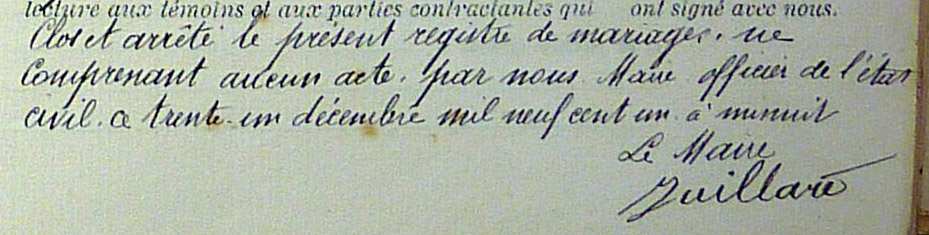 lecture aux témoins et aux parties contractantes qui ont signé avec nous.
Clos et arrêté le présent registre de mariages. ne
Comprenant aucun acte. par nous Maire officier de l'état
civil. ce trente-un décembre mil neuf cent un à minuit
Le Maire
Juillard